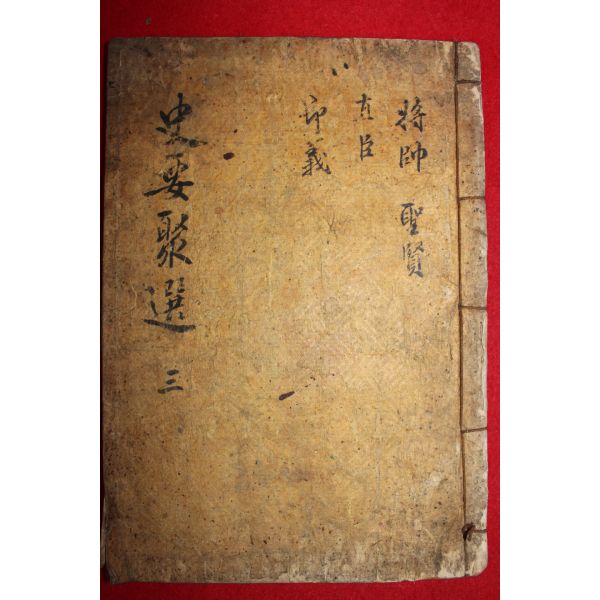 將帥 聖賢
直臣
節義
史要聚選 三